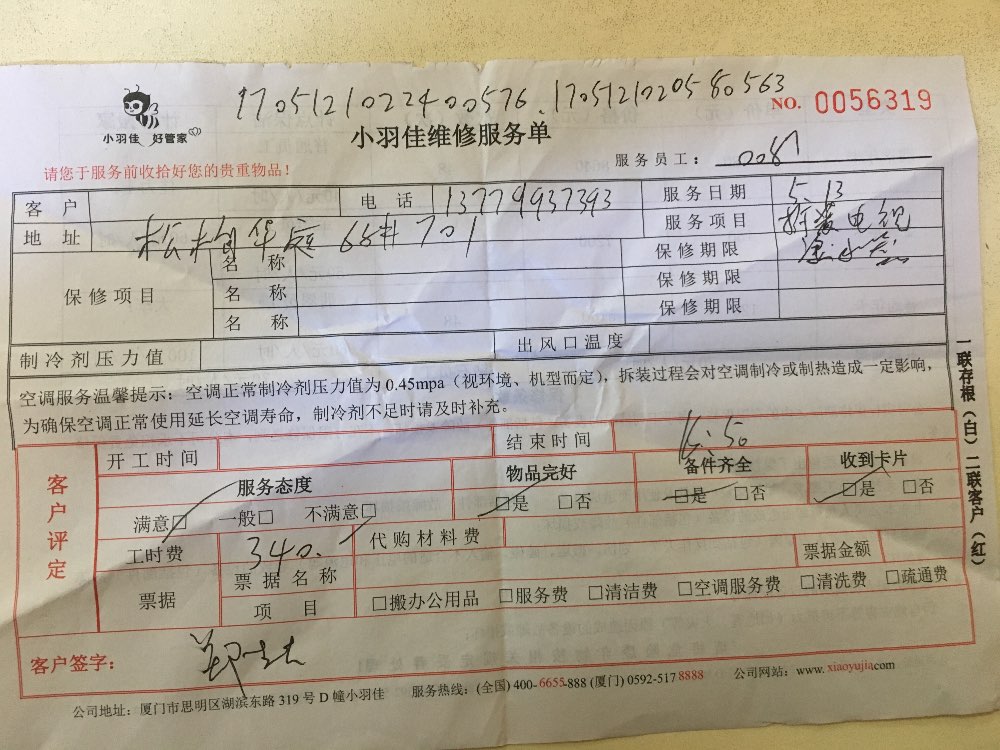 1705121022400576.1705121020580563
NO. 0056319
小羽佳 好管家
小羽佳维修服务单
请您于服务前收拾好您的贵重物品！
服务员工：0087
客户 电话 13779937393 服务日期 5.13
地址 松柏华庭 65# 701 服务项目 拆装电视
保修项目 名称 保修期限
名称 保修期限
名称 保修期限
制冷剂压力值 出风口温度
空调服务温馨提示：空调正常制冷剂压力值为 0.45mpa（视环境、机型而定），拆装过程会对空调制冷或制热造成一定影响，
为确保空调正常使用延长空调寿命，制冷剂不足时请及时补充。
客户评定
开工时间 结束时间
服务态度 物品完好 备件齐全 收到卡片
满意□ 一般□ 不满意□ □是 □否 □是 □否 □是 □否
工时费 340. 代购材料费 票据金额
票据 票据名称
项目 □搬办公用品 □服务费 □清洁费 □空调服务费 □清洗费 □疏通费
客户签字：
公司地址：厦门市思明区湖滨东路 319 号 D 幢小羽佳 服务热线：(全国) 400-6655-888 (厦门) 0592-517 8888 公司网站：www.xiaoyujia.com
一联存根（白）二联客户（红）